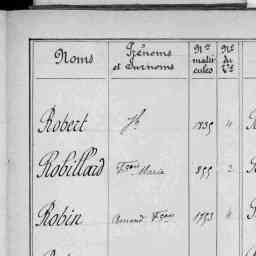 Noms
Prénoms
et Surnoms
Nos
matri-
cules
Nos
du
Robert Jh 1835 4
Robillard Fçois Marie 855 2
Robin Amand Fçois 1793 4